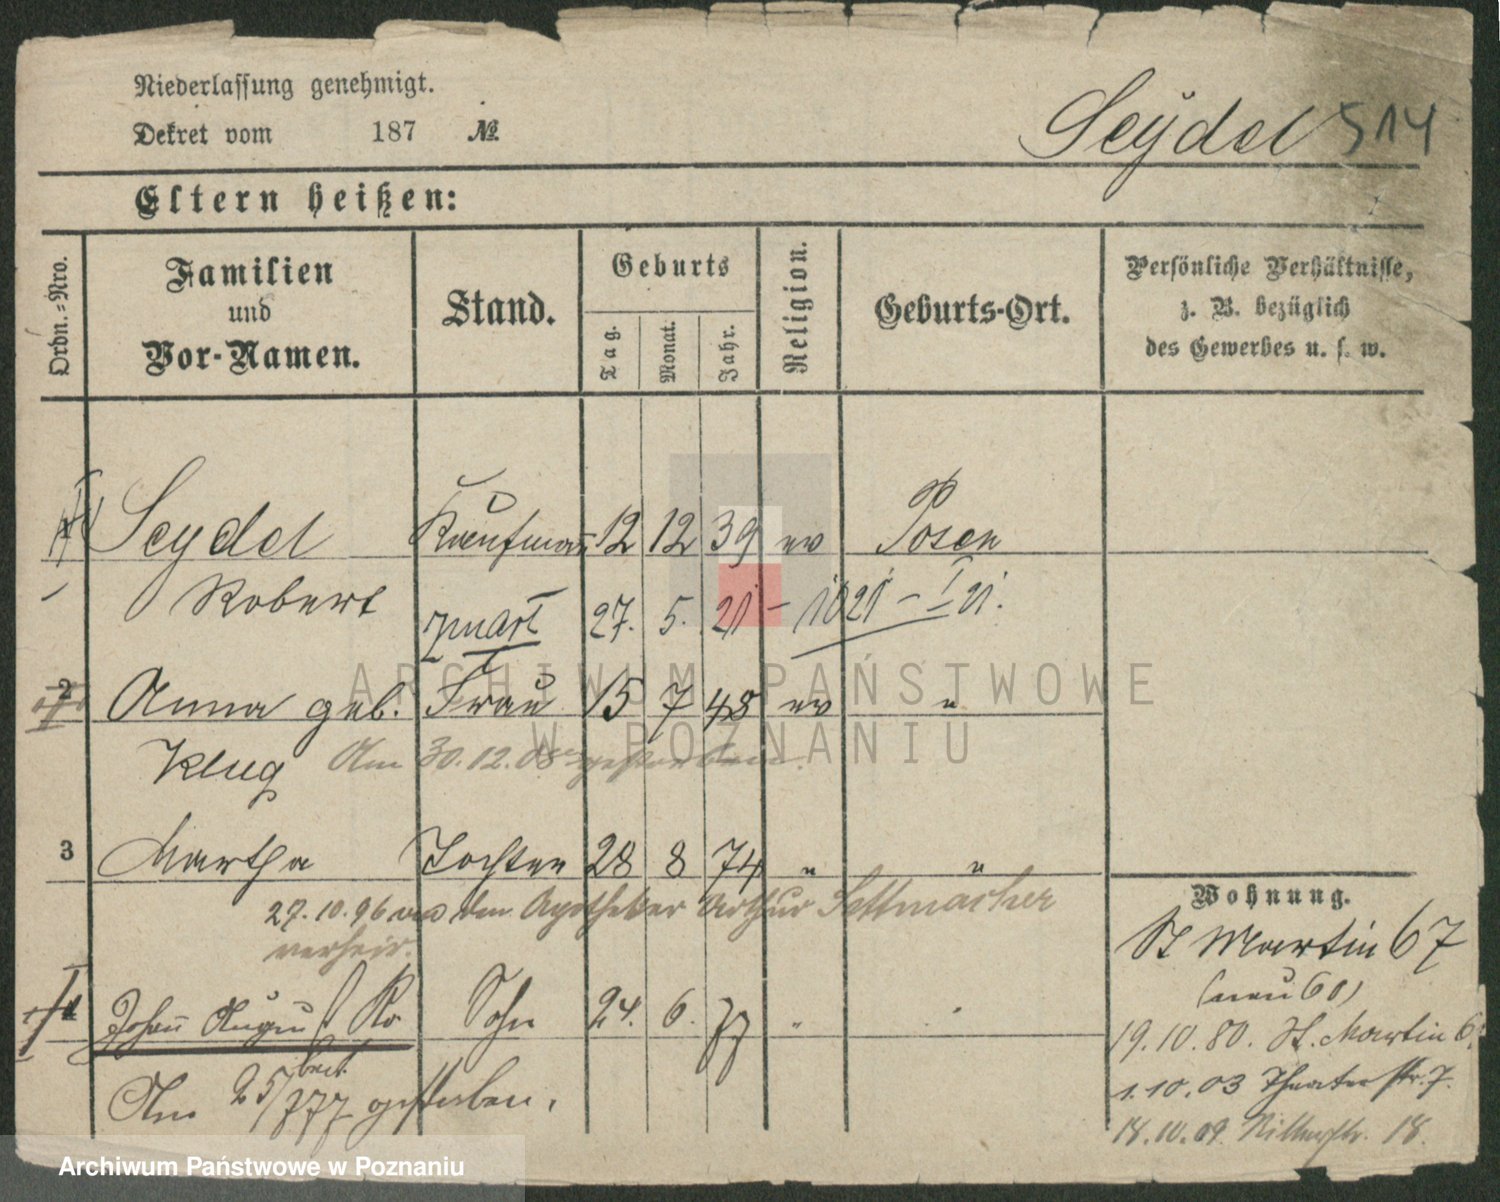 Niederlassung genehmigt.
Dekret vom 187 №
Seydel 514
Eltern heißen:
Ordn.-Nro.
Familien und Vor-Namen.
Stand.
Geburts
Tag. Monat. Jahr.
Religion.
Geburts-Ort.
Persönliche Verhältnisse,
z. B. bezüglich
des Gewerbes u. s. w.
Seydel Kaufmann 12 12 39 ev Posen
Robert 27. 5. 21 - 21 - I 21.
2 Anna geb. Frau 15 7 48 ev "
Klug Am 30.12.08 gestorben.
ARCHIWUM PAŃSTWOWE
W POZNANIU
3 Martha Tochter 28 8 74 " "
27.10.96 an den Apotheker Arthur Settmacher
verheir.
4 Johann August Ro Sohn 24. 6. 77 " "
bert
Am 25/7 77 gestorben.
Wohnung.
St Martin 67
(neu 60)
19.10.80. St. Martin 6
1.10.03 Theaterstr. 7.
18.10.09. Ritterstr. 18.
Archiwum Państwowe w Poznaniu